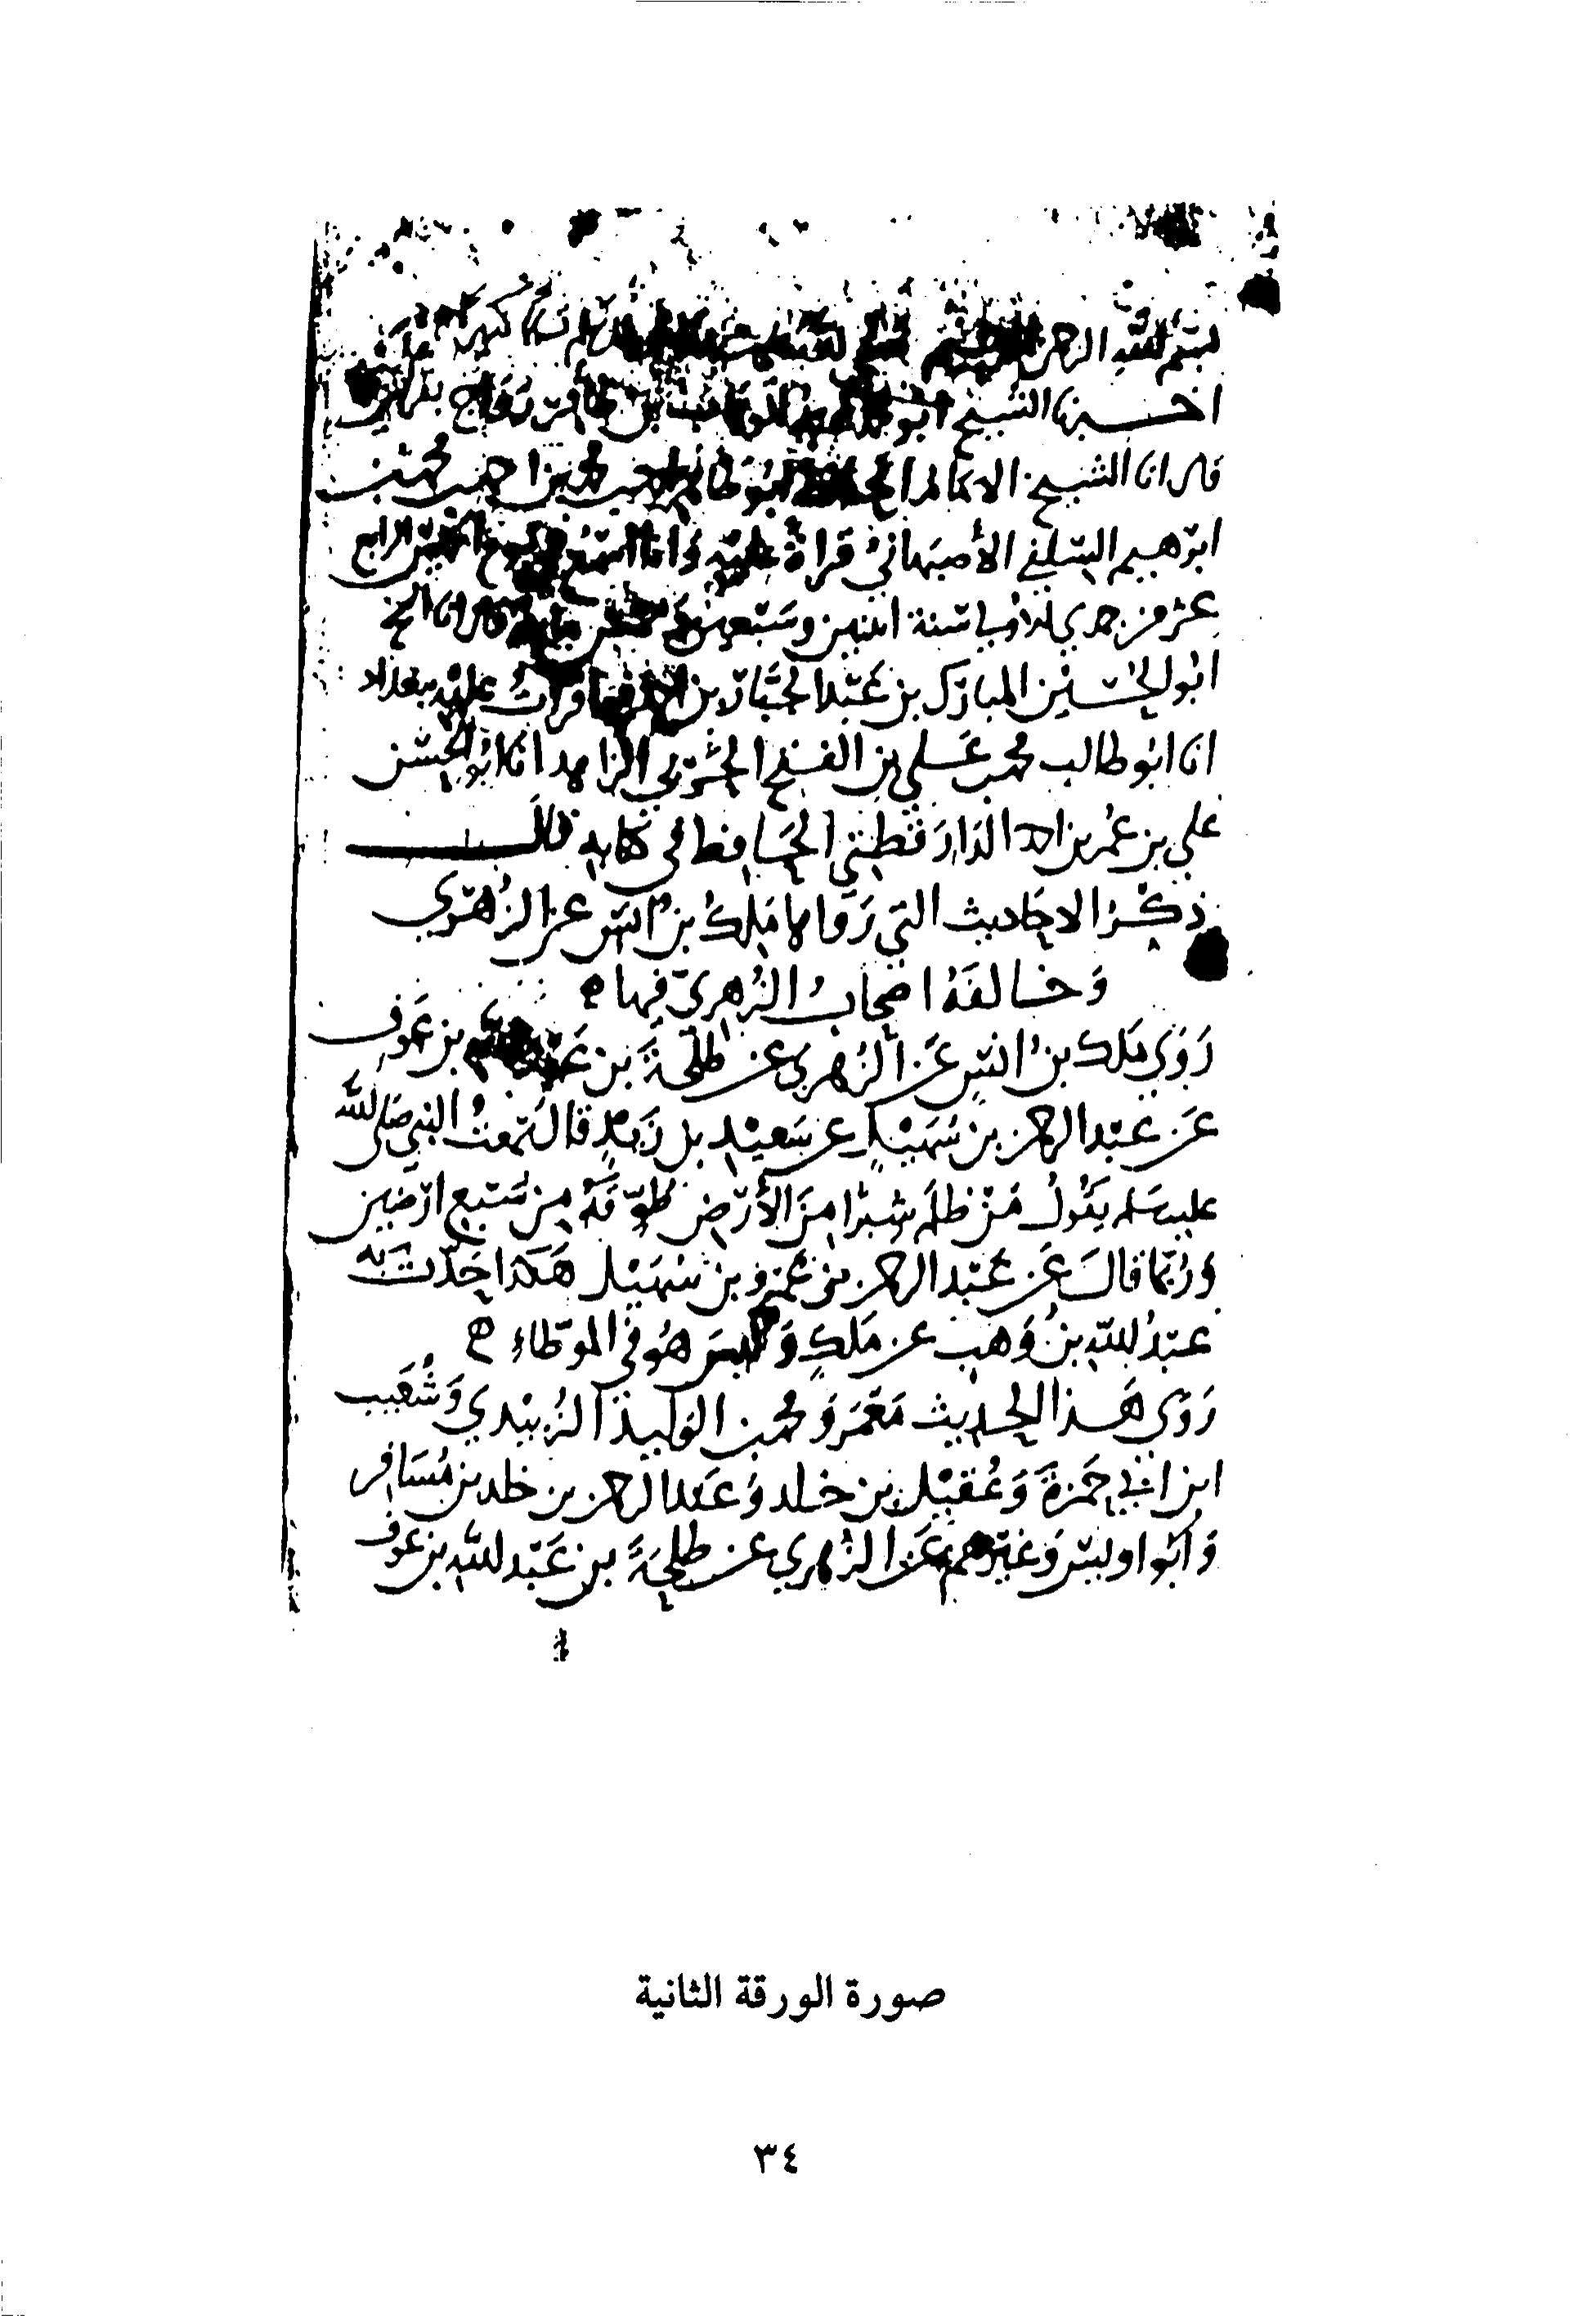 بسم الله الرحمن الرحيم
اخبرنا الشيخ ابو
قال انا الشيخ الامام ابو طاهر احمد بن محمد بن احمد بن محمد بن
ابرهيم السلفي الأصبهاني قراة عليه وانا اسمع الرابع
عشر من جمدي سنة اثنين وسبعين انا الشيخ
ابو الحسين المبارك بن عبد الجبار بن عليه ببغداد
انا ابو طالب محمد بن علي بن الفتح الحربي الزاهد انا ابو الحسن
علي بن عمر بن احمد الدارقطني الحافظ في كتابه قال
ذكر الاحاديث التي رواها ملك بن انس عن الزهري
وخالفه اصحاب الزهري فيها ه
روى ملك بن انس عن الزهري عن طلحة بن بن عوف
عن عبد الرحمن بن سهيل عن سعيد بن زيد قال سمعت النبي صلى الله
عليه وسلم يقول من ظلم شبرا من الأرض طوقه من سبع ارضين
وربما قال عن عبد الرحمن بن عمرو بن سهيل هكذا حدث به
عبد الله بن وهب عن ملك وليس هو في الموطاء ه
روى هذا الحديث معمر ومحمد بن الوليد الزبيدي وشعيب
ابن ابي حمزة وعقيل بن خلد وعبد الرحمن بن خلد بن مسافر
وابو اويس وغيرهم عن الزهري عن طلحة بن عبد الله بن عوف
صورة الورقة الثانية
٣٤